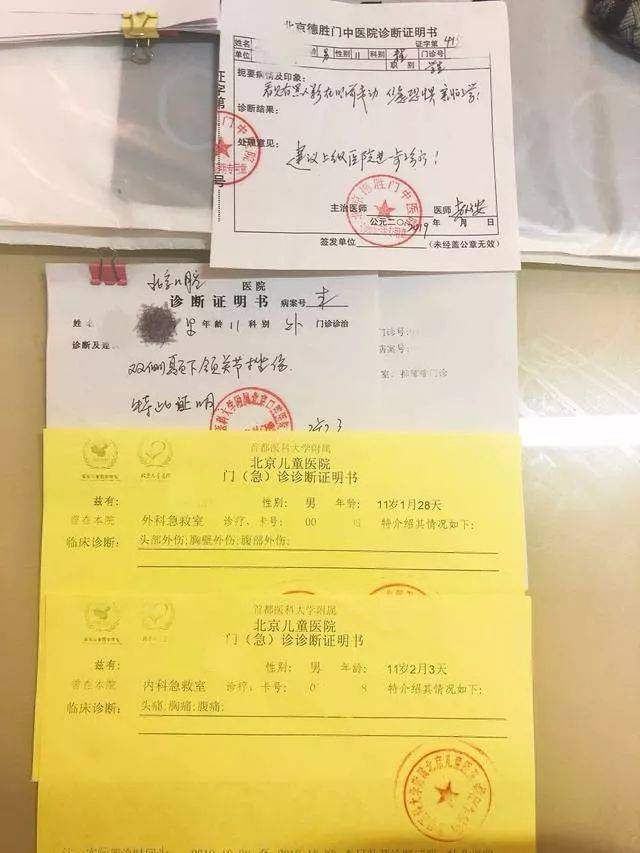 北京德胜门中医院诊断证明书
证字第
姓名 男 性别 11 科别 门诊号
单位 职别 学生
扼要病情及印象:
诊断结果:
处理意见:
建议上级医院进一步诊疗!
主治医师 医师
公元二〇2019年 月 日
签发单位 (未经盖公章无效)
证字第 号
北京德胜门中医院
北京口腔 医院
诊断证明书 病案号
姓名 男 年龄 11 科别 外 门诊诊治
诊断及
双侧颞下颌关节挫伤
特此证明
门诊号:
病案号:
首都医科大学附属
北京儿童医院
门(急)诊诊断证明书
兹有: 性别: 男 年龄: 11岁1月28天
曾在本院 外科急救室 诊疗、卡号: 00 特介绍其情况如下:
临床诊断: 头部外伤;胸壁外伤;腹部外伤;
首都医科大学附属
北京儿童医院
门(急)诊诊断证明书
兹有: 性别: 男 年龄: 11岁2月3天
曾在本院 内科急救室 诊疗、卡号: 0 8 特介绍其情况如下:
临床诊断: 头痛;胸痛;腹痛;
首都医科大学附属北京儿童医院